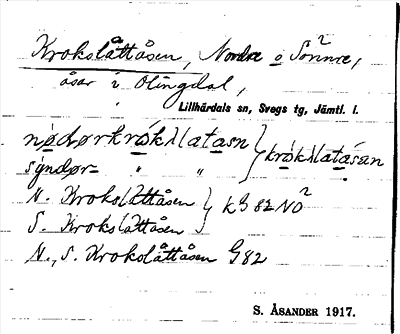 Krokslåttåsen, Nordre o Södre,
åsar i Olingdal,
Lillhärdals sn, Svegs tg, Jämtl. l.
nø̀dørkrókslatasn } kròkslatàsan
sýndør- " "
N. Krokslåttåsen } k382NO²
S. Krokslåttåsen
N., S. Krokslåttåsen G82
S. ÅSANDER 1917.